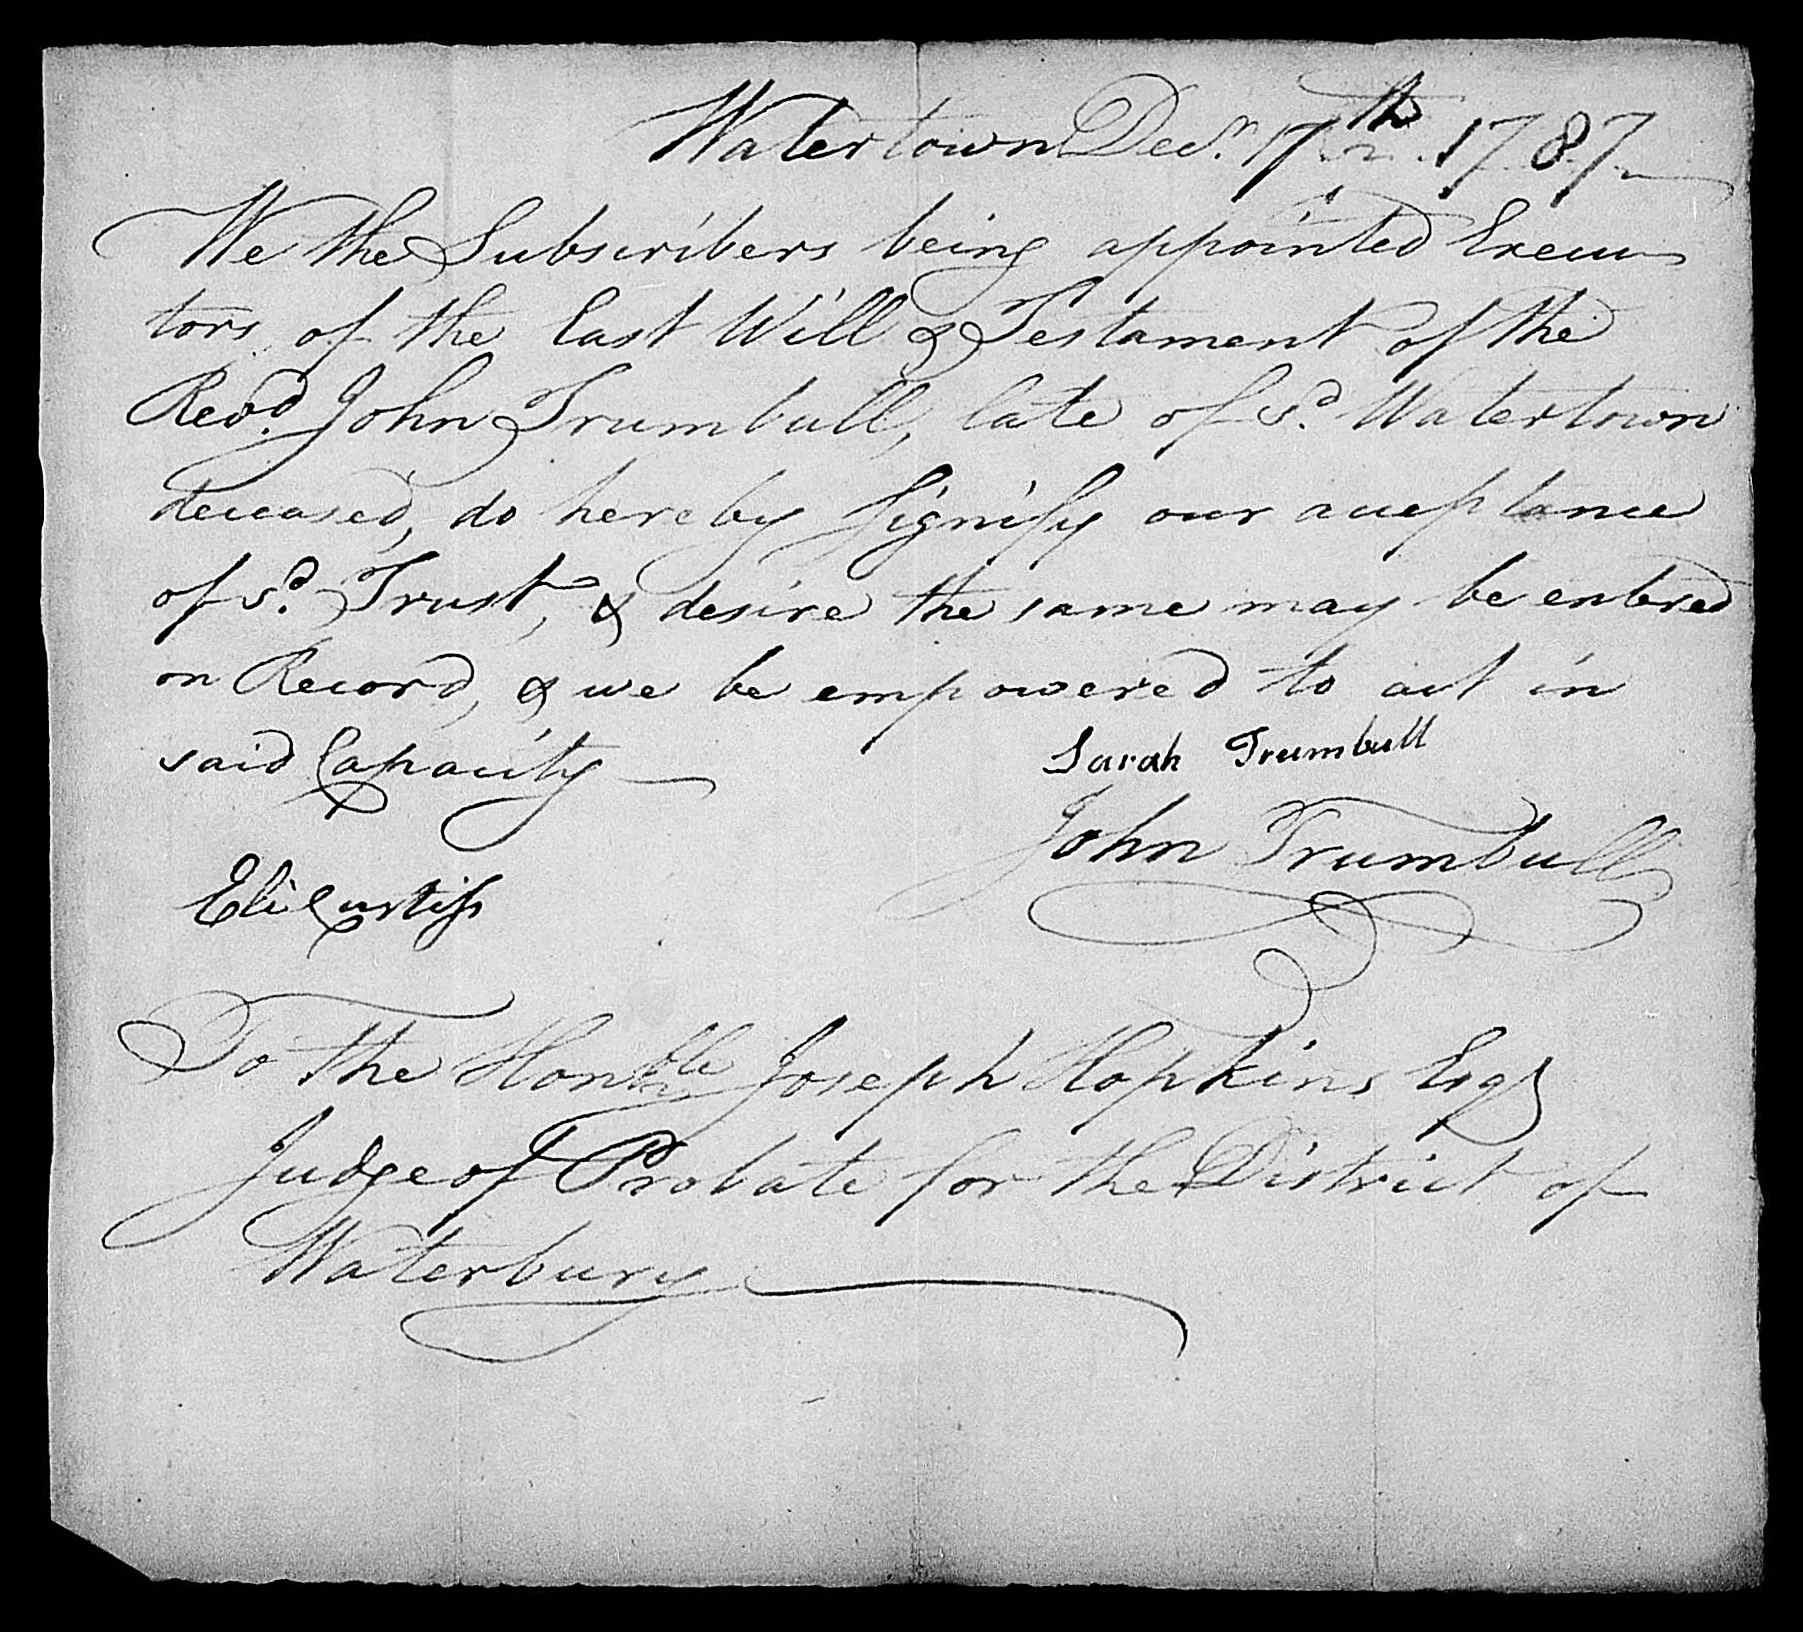 Watertown Decr. 17th. 1787
We the Subscribers being appointed Execu
tors of the last Will & Testament of the
Revd. John Trumbull, late of sd. Watertown
deceased, do hereby signify our acceptance
of sd. Trust, & desire the same may be entered
on Record, & we be empowered to act in
said Capacity
Sarah Trumbull
John Trumbull
Eli Curtiss
To the Honble Joseph Hopkins Esqr
Judge of Probate for the District of
Waterbury